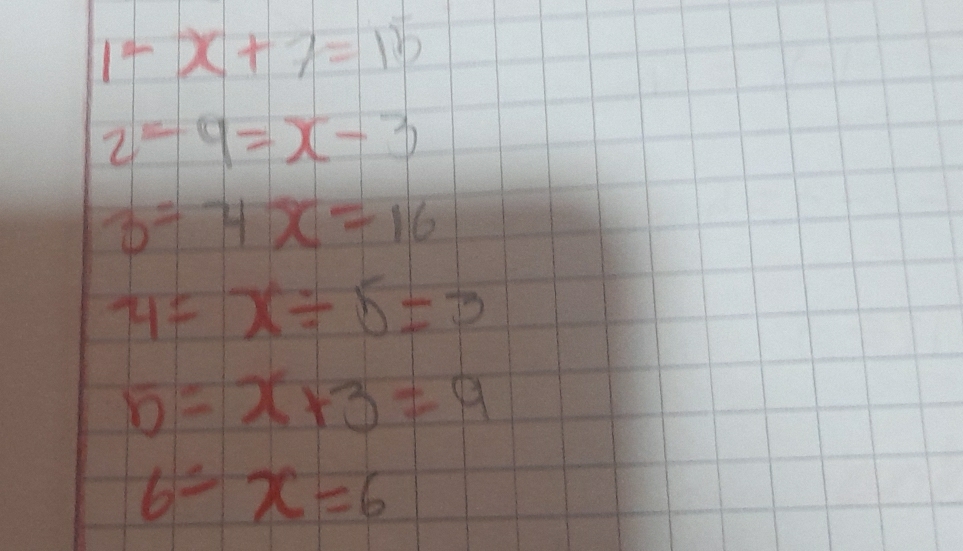 1- x + 7 = 15
2- 9 = x - 3
3- 4 x = 16
4- x ÷ 5 = 3
5- x + 3 = 9
6- x = 6